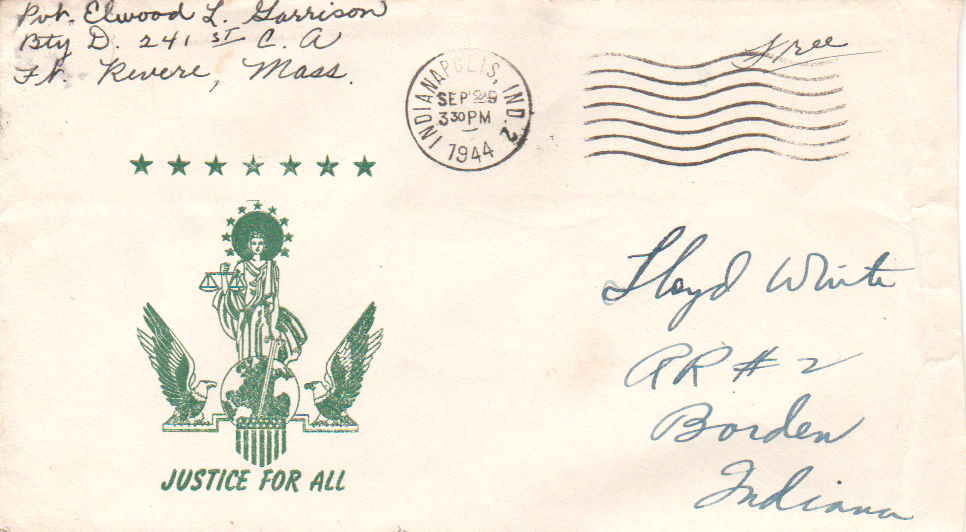 Pvt. Elwood L. Garrison
Bty D. 241 st C. A
Ft. Revere, Mass.
INDIANAPOLIS, IND. 2
SEP 25
3 30 PM
1944
Free
JUSTICE FOR ALL
Lloyd White
RR # 2
Borden
Indiana